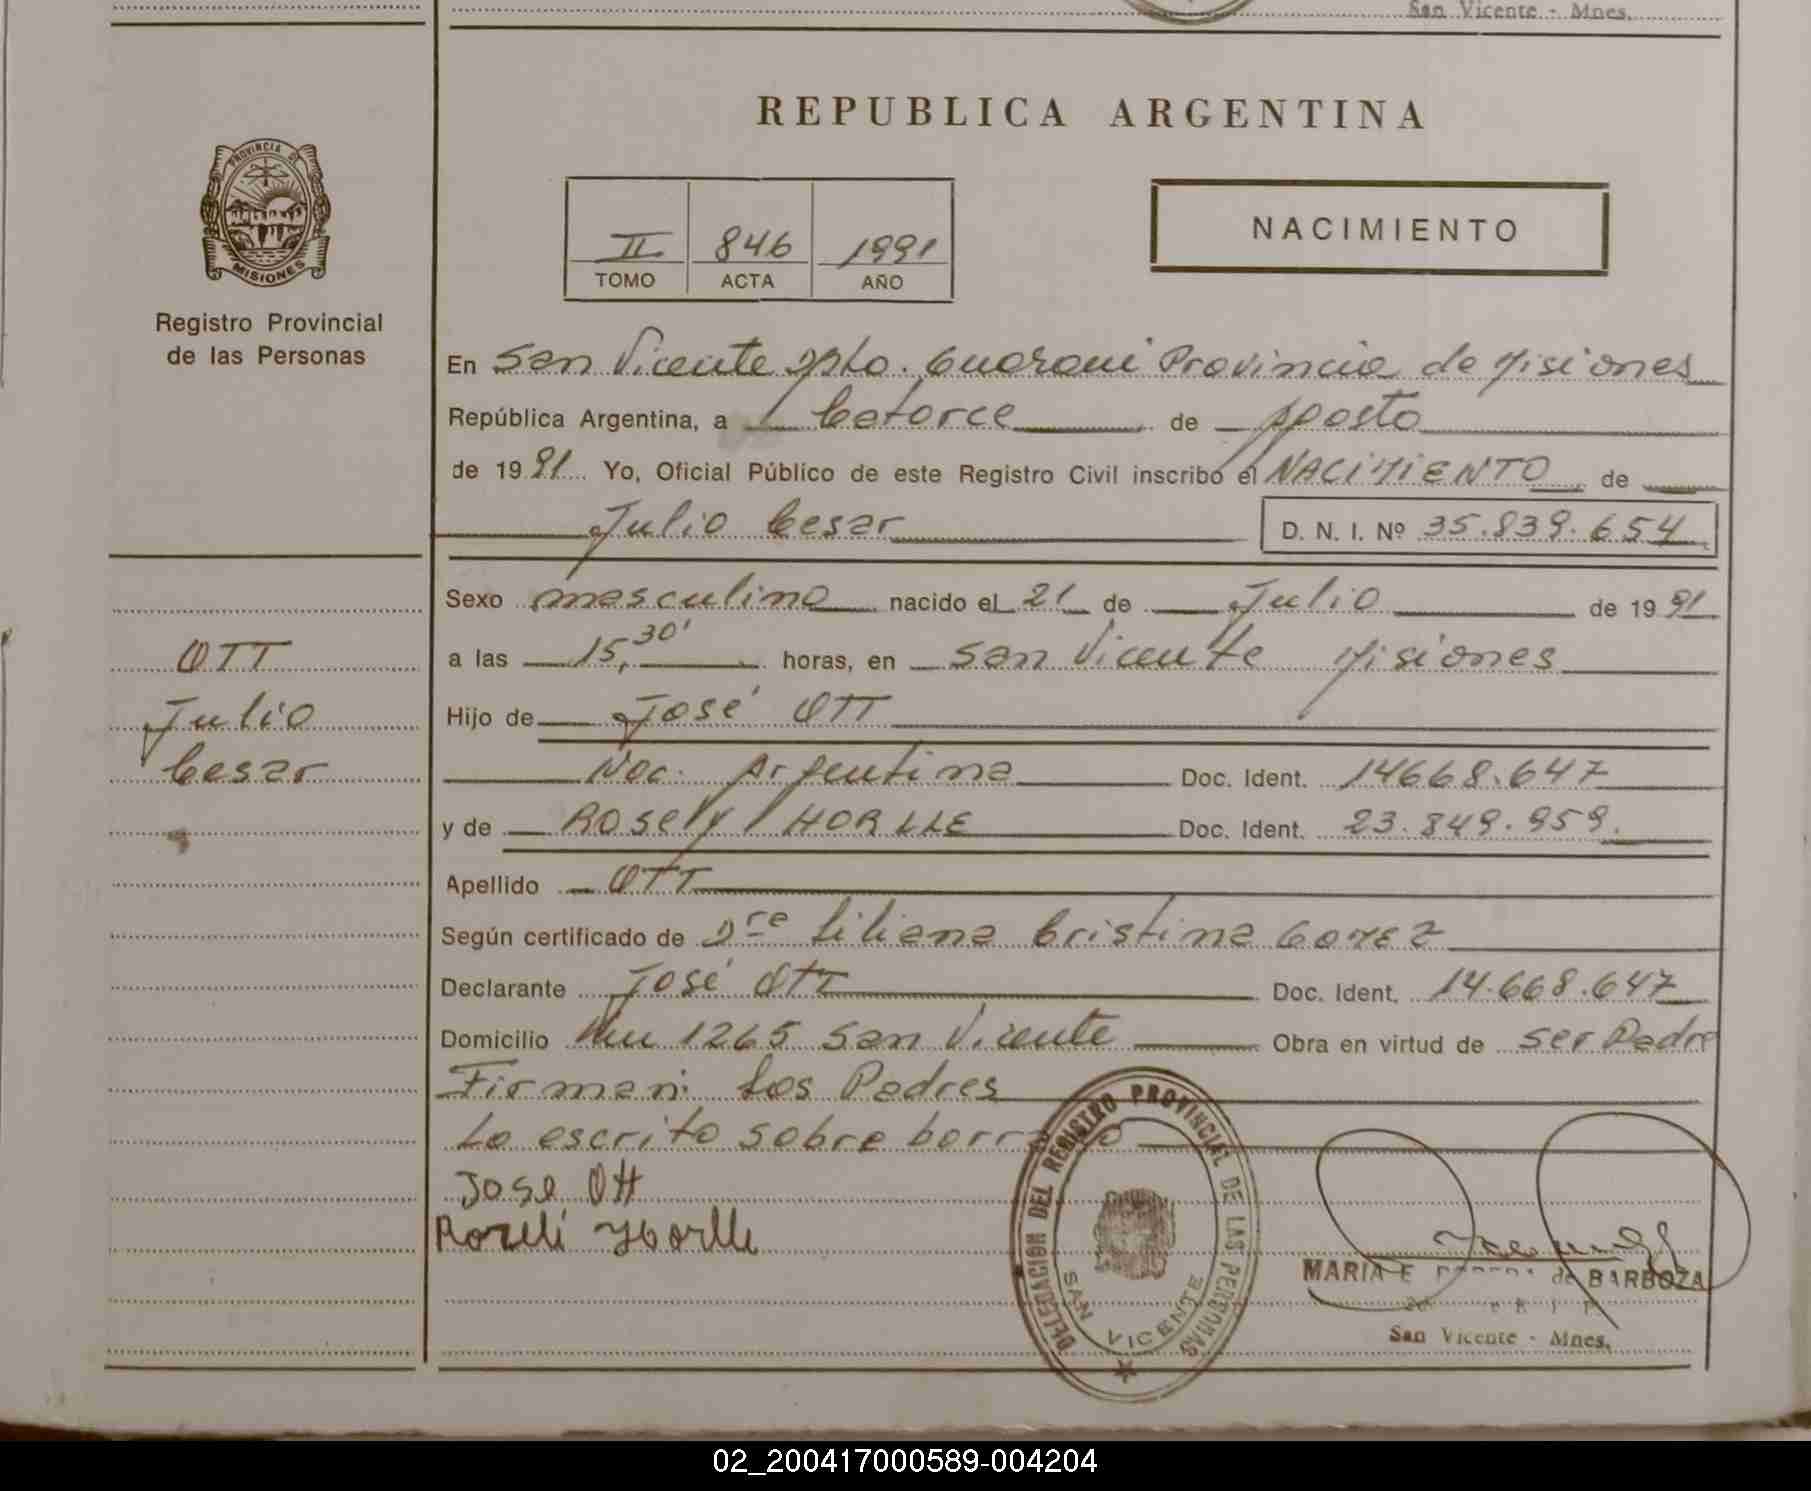 San Vicente - Mnes.
REPUBLICA ARGENTINA
PROVINCIA DE
MISIONES
Registro Provincial
de las Personas
II 846 1991
TOMO ACTA AÑO
NACIMIENTO
En San Vicente Dpto. Guarani Provincia de Misiones
República Argentina, a Catorce de Agosto
de 1991 Yo, Oficial Público de este Registro Civil inscribo el NACIMIENTO de
Julio Cesar D. N. I. Nº 35.839.654
Sexo masculino nacido el 21 de Julio de 1991
OTT
Julio
Cesar
a las 15,30' horas, en San Vicente Misiones
Hijo de José OTT
Nac. Argentina Doc. Ident. 14668.647
y de Rosely HORLLE Doc. Ident. 23.849.959.
Apellido OTT
Según certificado de Dra Liliana Cristina GOMEZ
Declarante José OTT Doc. Ident. 14.668.647
Domicilio Mu 1265 San Vicente Obra en virtud de ser Padre
Firman: Los Padres
Lo escrito sobre borrado
Jose Ott
Rozeli Horlle
DELEGACION DEL REGISTRO PROVINCIAL DE LAS PERSONAS
SAN VICENTE
MARIA E de BARBOZA
San Vicente - Mnes.
02_200417000589-004204